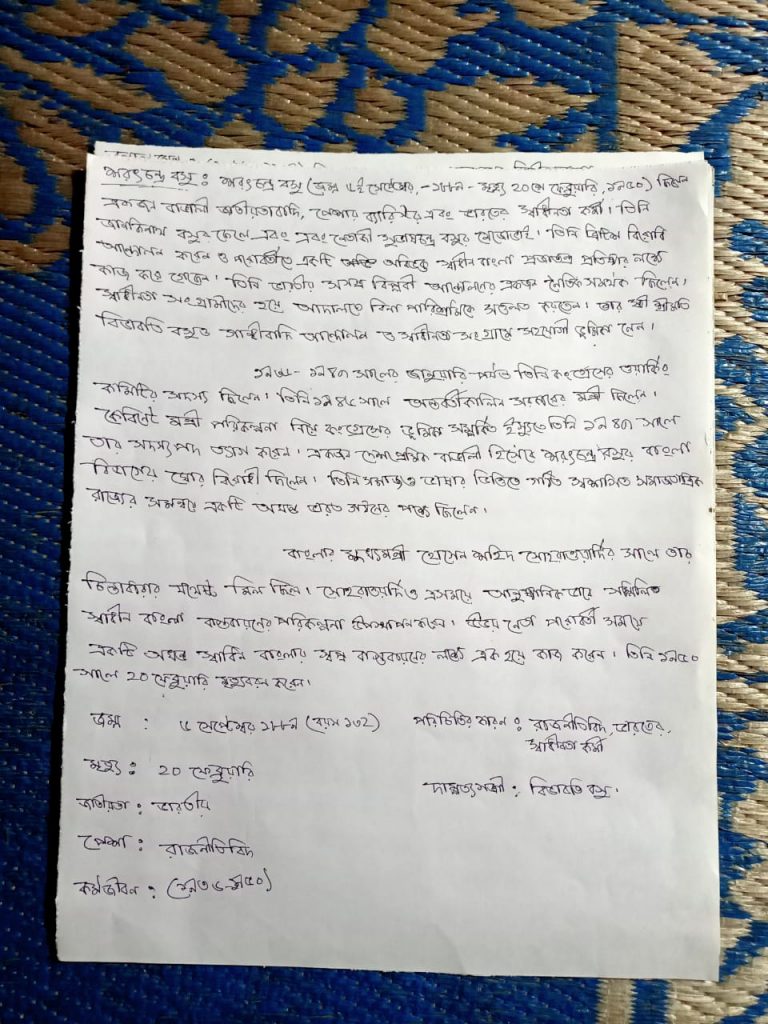 শরৎচন্দ্র বসু : শরৎচন্দ্র বসু (জন্ম ৬ই সেপ্টেম্বর, -১৮৮৯- মৃত্যু ২০শে ফেব্রুয়ারি, ১৯৫০) ছিলেন
একজন বাঙালী জাতীয়তাবাদি, পেশায় ব্যারিস্টার এবং ভারতের স্বাধীনতা কর্মী। তিনি
জানকিনাথ বসুর ছেলে এবং এবং নেতাজী সুভাষচন্দ্র বসুর মেজোভাই। তিনি ব্রিটিশ বিরোধি
আন্দোলন করেন ও পরবর্তীতে একটি অবিভক্ত স্বাধীন বাংলা প্রজাতন্ত্র প্রতিষ্ঠার লক্ষ্যে
কাজ করে গেছেন। তিনি ভারতীয় সশস্ত্র বিপ্লবী আন্দোলনের একজন নৈতিক সমর্থক ছিলেন।
স্বাধীনতা সংগ্রামীদের হয়ে আদালতে বিনা পারিশ্রমিকে করতেন। তার স্ত্রী শ্রীমতি
বিভাবতি বসুও আন্দোলন ও স্বাধীনতা সংগ্রামে সহযোগী ভূমিকা নেন।
১৯৩৬- ১৯৪৭ সালের জানুয়ারি পর্যন্ত তিনি কংগ্রেসের ওয়ার্কিং
কমিটির সদস্য ছিলেন। তিনি ১৯৪৬ সালে অন্তর্বর্তীকালিন সরকারের মন্ত্রী ছিলেন।
কেবিনেট মন্ত্রী পরিকল্পনা নিয়ে কংগ্রেসের ভূমিকা সম্পর্কিত ইস্যুতে তিনি ১৯৪৭ সালে
তার সদস্যপদ ত্যাগ করেন। একজন দেশপ্রেমিক বাঙালী হিসেবে শরৎচন্দ্র বসুর বাংলা
বিভাগের ঘোর বিরোধী ছিলেন। তিনি ভাষার ভিত্তিতে গঠিত স্বশাসিত সমাজতান্ত্রিক
রাজ্যের সমন্বয়ে একটি অখন্ড ভারত গঠনের পক্ষে ছিলেন।
বাংলার মুখ্যমন্ত্রী হোসেন শহিদ সোহরাওয়ার্দির সাথে তার
চিন্তাধারার যথেষ্ট মিল ছিল। সোহরাওয়ার্দিও এসময়ে আনুষ্ঠানিকভাবে সম্মিলিত
স্বাধীন বাংলা বাস্তবায়নের পরিকল্পনা উপস্থাপন করেন। উভয় নেতা পরবর্তী সময়ে
একটি অখন্ড স্বাধিন বাংলার স্বপ্ন বাস্তবায়নের লক্ষ্যে এক হয়ে কাজ করেন। তিনি ১৯৫০
সালে ২০ ফেব্রুয়ারি মৃত্যুবরণ করেন।
জন্ম : ৬ সেপ্টেম্বর ১৮৮৯ (বয়স ১৩২) পরিচিতির কারন : রাজনীতিবিদ, ভারতের
স্বাধীনতা কর্মী
মৃত্যু : ২০ ফেব্রুয়ারি
দাম্পত্যসঙ্গী : বিভাবতি বসু।
জাতীয়তা : ভারতীয়
পেশা : রাজনীতিবিদ
কর্মজীবন : (১৯৩৬-১৯৫০)